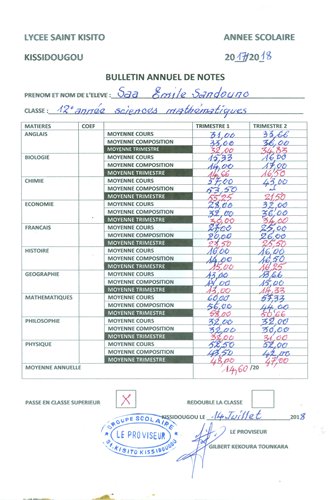 LYCEE SAINT KISITO ANNEE SCOLAIRE
KISSIDOUGOU 2017/2018
BULLETIN ANNUEL DE NOTES
PRENOM ET NOM DE L'ELEVE : Saa Emile Sandouno
CLASSE : 12e année sciences mathématiques
MATIERES COEF TRIMESTRE 1 TRIMESTRE 2
ANGLAIS MOYENNE COURS 31,00 33,66
MOYENNE COMPOSITION 33,00 36,00
MOYENNE TRIMESTRE 32,00 34,83
BIOLOGIE MOYENNE COURS 15,33 16,00
MOYENNE COMPOSITION 14,00 17,00
MOYENNE TRIMESTRE 14,66 16,50
CHIMIE MOYENNE COURS 57,00 43,00
MOYENNE COMPOSITION 53,50
MOYENNE TRIMESTRE 55,25 21,50
ECONOMIE MOYENNE COURS 28,00 32,00
MOYENNE COMPOSITION 32,00 36,00
MOYENNE TRIMESTRE 30,00 34,00
FRANCAIS MOYENNE COURS 27,00 25,00
MOYENNE COMPOSITION 20,00 26,00
MOYENNE TRIMESTRE 23,50 25,50
HISTOIRE MOYENNE COURS 16,00 16,00
MOYENNE COMPOSITION 14,00 16,50
MOYENNE TRIMESTRE 15,00 16,25
GEOGRAPHIE MOYENNE COURS 13,66
MOYENNE COMPOSITION 15,00
MOYENNE TRIMESTRE 13,00 14,33
MATHEMATIQUES MOYENNE COURS 60,00 57,33
MOYENNE COMPOSITION 56,00 44,00
MOYENNE TRIMESTRE 58,00 50,66
PHILOSOPHIE MOYENNE COURS 32,00 32,00
MOYENNE COMPOSITION 32,00 30,00
MOYENNE TRIMESTRE 32,00 31,00
PHYSIQUE MOYENNE COURS 52,50 52,00
MOYENNE COMPOSITION 43,50 42,00
MOYENNE TRIMESTRE 48,00 47,00
MOYENNE ANNUELLE 14,60/20
PASSE EN CLASSE SUPERIEUR X REDOUBLE LA CLASSE
KISSIDOUGOU LE 14 Juillet 2018
GROUPE SCOLAIRE
LE PROVISEUR
ST. KISITO KISSIDOUGOU
LE PROVISEUR
GILBERT KEKOURA TOUNKARA